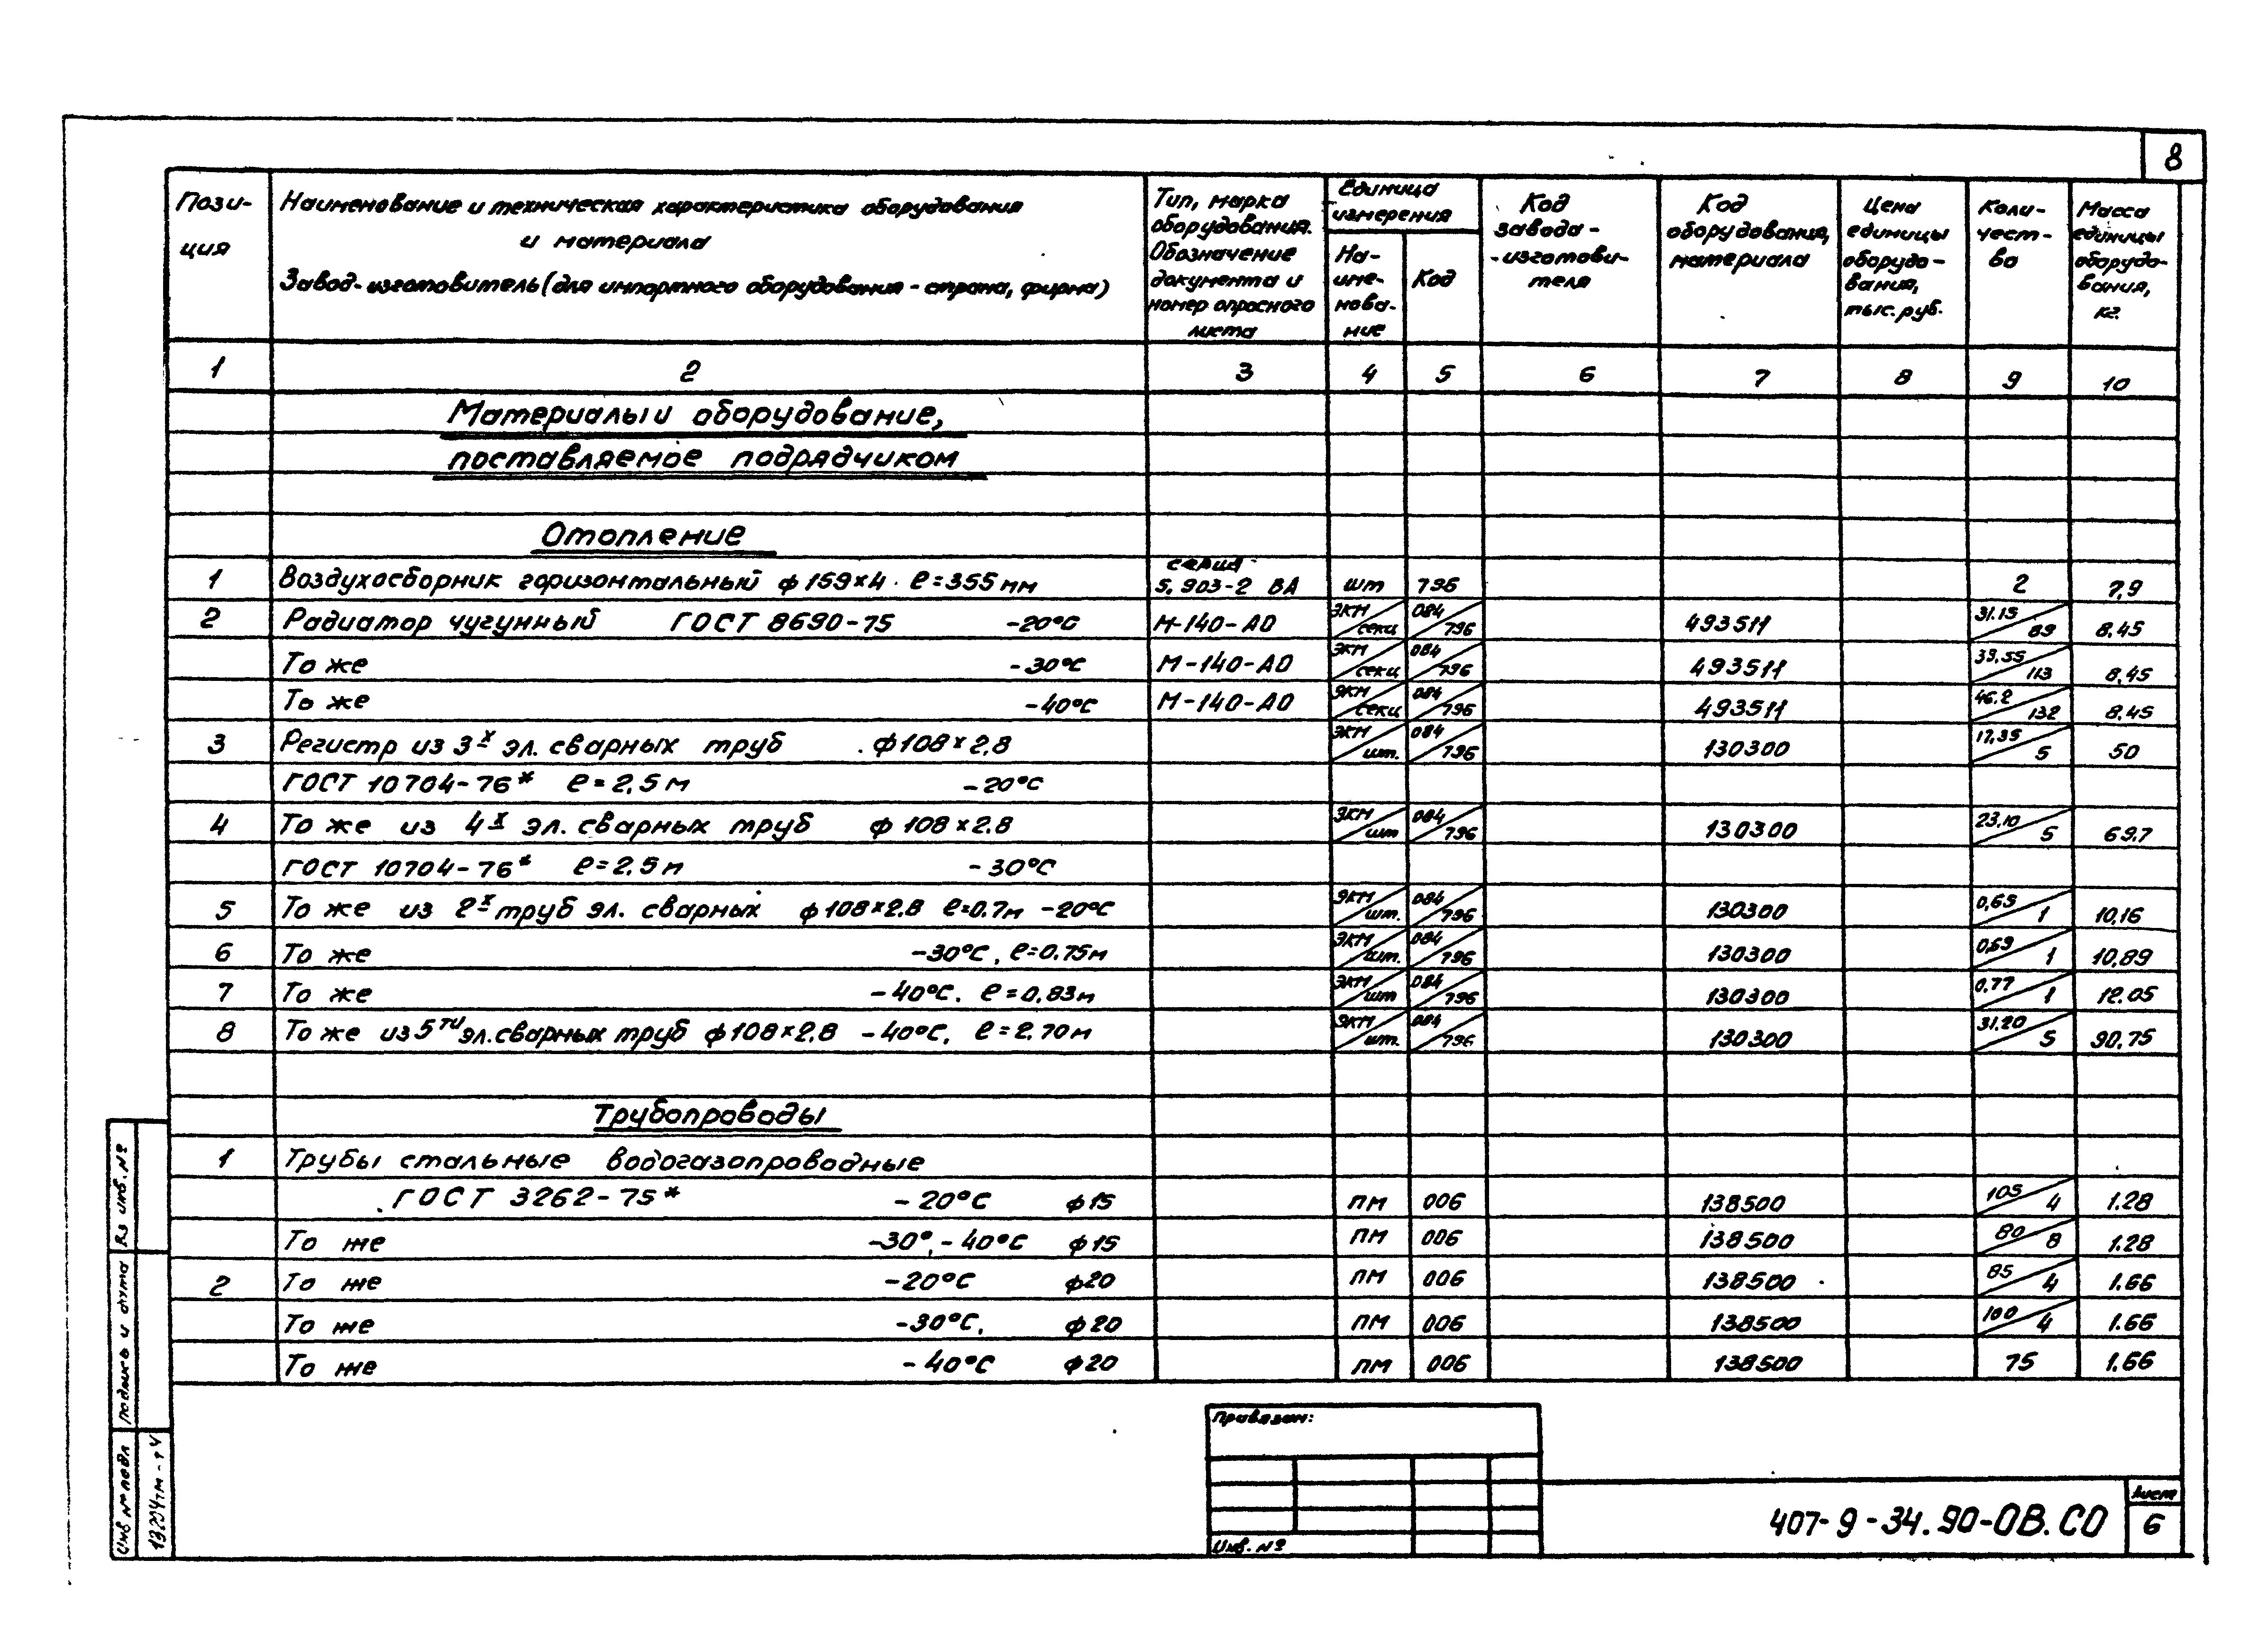 8
Пози-
ция
Наименование и техническая характеристика оборудования
и материала
Завод-изготовитель (для импортного оборудования - страна, фирма)
Тип, марка
оборудования.
Обозначение
документа и
номер опросного
листа
Единица
измерения
На-
име-
нова-
ние
Код
Код
завода-
-изготови-
теля
Код
оборудования,
материала
Цена
единицы
оборудо-
вания,
тыс. руб.
Коли-
чест-
во
Масса
единицы
оборудо-
вания,
кг.
1 2 3 4 5 6 7 8 9 10
Материалы и оборудование,
поставляемое подрядчиком
Отопление
1 Воздухосборник горизонтальный ф159×4 ℓ=355мм серия 5.903-2 ВА шт 796 2 7,9
2 Радиатор чугунный ГОСТ 8690-75 -20°С М-140-АО экм/секц 084/796 493511 31.15/89 8,45
То же -30°С М-140-АО экм/секц 084/796 493511 39,55/113 8,45
То же -40°С М-140-АО экм/секц 084/796 493511 46.2/132 8.45
3 Регистр из 3х эл. сварных труб ф108×2,8 экм/шт. 084/796 130300 17,35/5 50
ГОСТ 10704-76* ℓ=2,5м -20°С
4 То же из 4х эл. сварных труб ф108×2.8 экм/шт 084/796 130300 23,10/5 69.7
ГОСТ 10704-76* ℓ=2,5м -30°С
5 То же из 2х труб эл. сварных ф108×2.8 ℓ=0.7м -20°С экм/шт. 084/796 130300 0,65/1 10,16
6 То же -30°С, ℓ=0.75м экм/шт. 084/796 130300 0,69/1 10,89
7 То же -40°С. ℓ=0,83м экм/шт 084/796 130300 0.77/1 12.05
8 То же из 5ти эл. сварных труб ф108×2,8 -40°С, ℓ=2,70м экм/шт. 084/796 130300 31.20/5 90,75
Трубопроводы
1 Трубы стальные водогазопроводные
ГОСТ 3262-75* -20°С ф15 пм 006 138500 105/4 1.28
То же -30°, -40°С ф15 пм 006 138500 80/8 1.28
2 То же -20°С ф20 пм 006 138500 85/4 1.66
То же -30°С, ф20 пм 006 138500 100/4 1.66
То же -40°С ф20 пм 006 138500 75 1,66
Вз инв. №
подпись и дата
Инв № подл
13294тм-т4
Привязан:
Инв. №
407-9-34.90-ОВ.СО
Лист
6